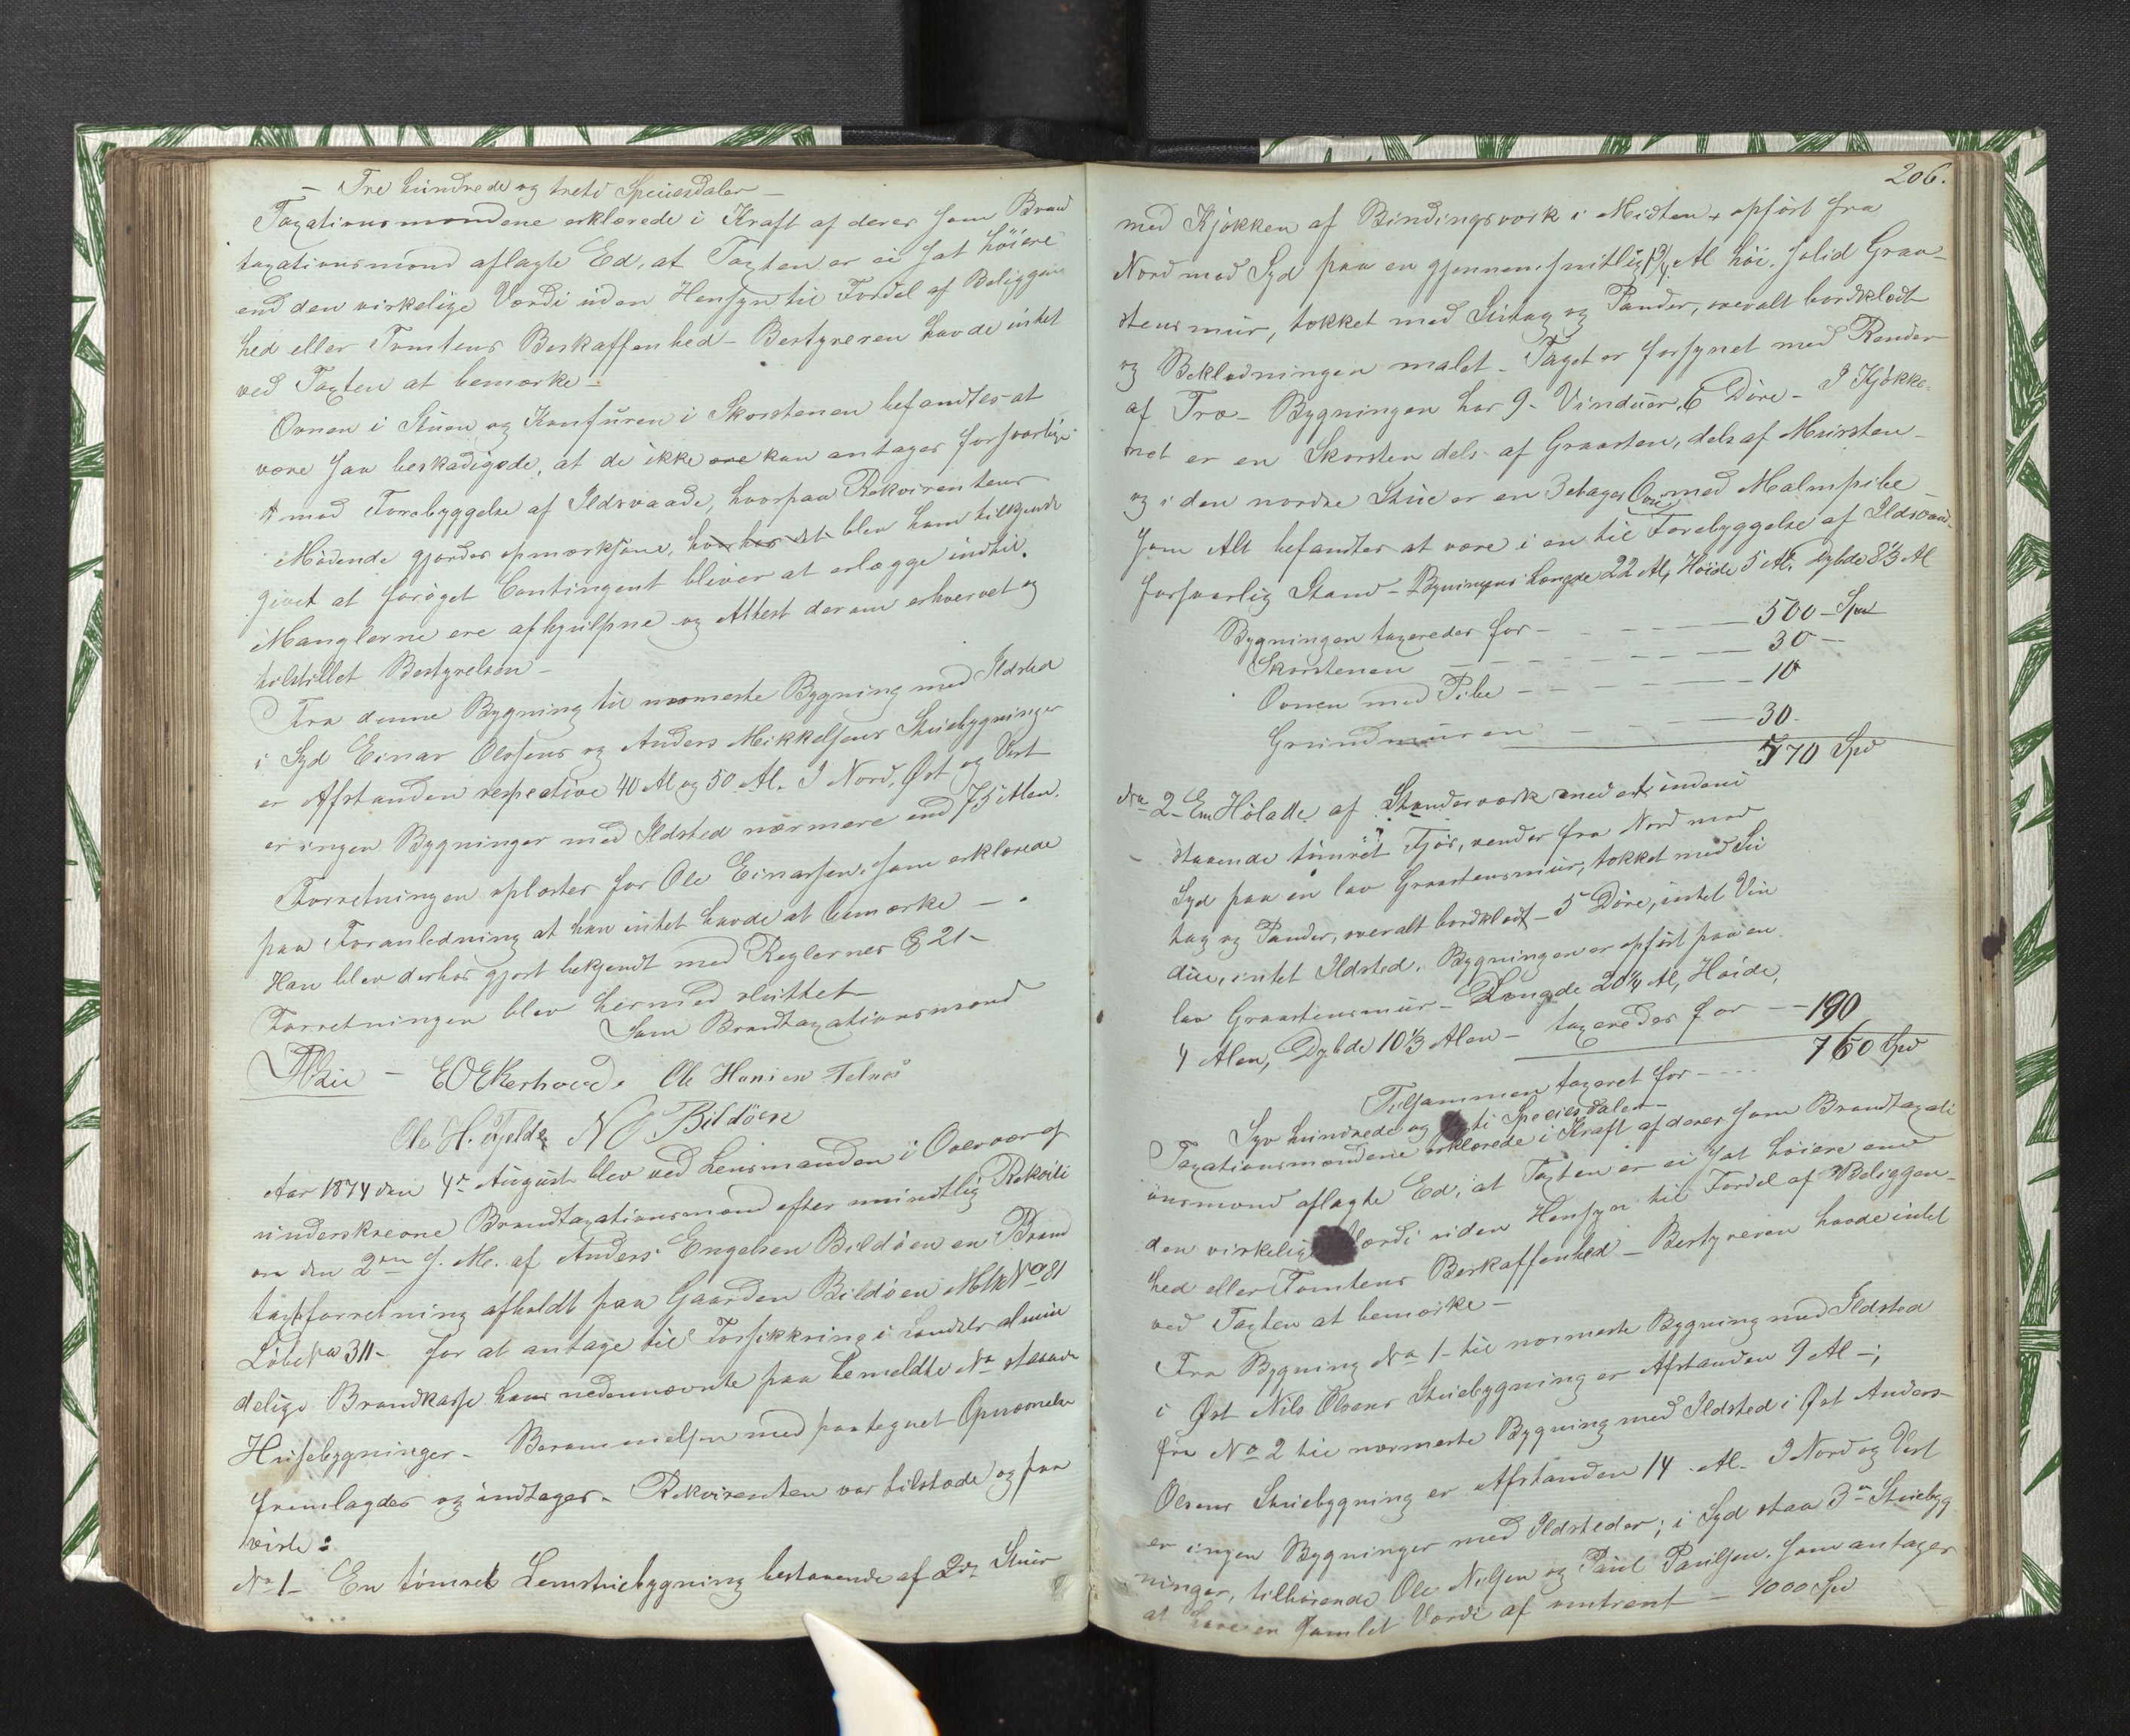 – Tre hundrede og treti Speciesdaler –
Taxationsmændene erklærede i Kraft af deres som Brand
taxationsmænd aflagte Ed, at Taxten er ei sat høiere
end den virkelige Værdi uden Hensyn til Fordel af Beliggen
hed eller Tomtens Beskaffenhed – Bestyreren havde intet
ved Taxten at bemærke.
Ovnen i Stuen og Komfuren i Skorstenen befandtes at
være saa beskadigede, at de ikke ere kan antages forsvarlige
mod Forebyggelse af Ildsvaade, hvorpaa Rekvirenten
Mødende gjordes opmærksom, hvorhos det blev ham tilkjende
givet at forøget Contingent bliver at erlægge indtil
Manglerne ere afhjulpne og Attest derom erhvervet og
tilstillet Bestyrelsen –
Fra denne Bygning til nærmeste Bygning med Ildsted
i Syd Einar Olosens og Anders Mikkelsens Stuebygninger
er Afstanden respective 40 Al og 50 Al. I Nord, Øst og Vest
er ingen Bygninger med Ildsted nærmere end 75 Alen.
Forretningen oplæstes for Ole Einarsen, som erklærede
paa Foranledning at han intet havde at bemærke –.
Han blev derhos gjort bekjendt med Reglernes § 21 –
Forretningen blev hermed sluttet
Som Brandtaxationsmænd
EOEkerhovd. Ole Hansen Telnæs
Ole H. NO Bildöen
Aar 1874 den 4de August blev ved Lensmanden i Overvær af
underskrevne Brandtaxationsmænd efter mundtlig Rekvisi
on den 2den d. M. af Anders Engelsen Bildøen en Brand
taxtforretning afholdt paa Gaarden Bildøen Mtk No 81
Løbe No 311 – for at antage til Forsikkring i Landets almin
delige Brandkasse hans nedennævnte paa bemeldte No staaende
Husebygninger – Berammelsen med paategnet Opnævnelse
fremlagdes og indtages – Rekvirenten var tilstede og paa
viste:
No 1 – En tømret Lemstuebygning bestaaende af 2de Stuer
206.
med Kjøkken af Bindingsværk i Midten, opført fra
Nord mod Syd paa en gjennemsnitlig 1 3/4 Al høi, solid Graa-
stens mur, tækket med Lutag og Pander, overalt bordklædt
og Beklædningen malet – Taget er forsynet med Render
af Træ – Bygningen har 9 – Vinduer, 6 Døre – I Kjøkke-
net er en Skorsten dels af Graasten, dels af Mursten –
og i den nordre Stue er en 3 etages Ovn med Malmpibe
som Alt befandtes at være i en til Forebyggelse af Ildsvaade
forsvarlig Stand – Bygningens Længde 22 Al, Høide 5 Al, Dybde 8 1/3 Al
Bygningen taxeredes for – – – – – 500 – Spd
Skorstenen – – – – – – – 30 –
Ovnen med Pibe – – – – – – 10
Grundmuren – – – – 30 –
570 Spd
No 2 – En Hølade af Stenderværk med et indeni
staaende tømret Fjøs, vender fra Nord mod
Syd paa en lav Graastensmur, tækket med Lu
tag og Pander, overalt bordklædt – 5 Døre, intet Vin
due, intet Ildsted. Bygningen er opført paa en
lav Graastensmur – Længde 20 1/4 Al, Høide,
4 Alen, Dybde 10 1/3 Alen – taxeredes for – – 190
760 Spd
Tilsammen taxeret for – – –
Syv hundrede og ti Speciesdaler –
Taxationsmændene erklærede i Kraft af deres som Brandtaxati
onsmænd aflagte Ed, at Taxten er ei sat høiere end
den virkelige Værdi uden Hensyn til Fordel af Beliggen-
hed eller Tomtens Beskaffenhed – Bestyreren havde intet
ved Taxten at bemærke –
Fra Bygning No 1 – til nærmeste Bygning med Ildsted
i Øst Nils Olsens Stuebygning er Afstanden 9 Al –;
fra No 2 til nærmeste Bygning med Ildsted i Øst Anders
Olsens Stuebygning er Afstanden 14 – Al – I Nord og Vest
er ingen Bygninger med Ildsteder; i Syd staa 3de Stuebyg
ninger, tilhørende Ole Nilsen og Paul Paulsen, som antages
at have en samlet Værdi af omtrent – 1000 Spd